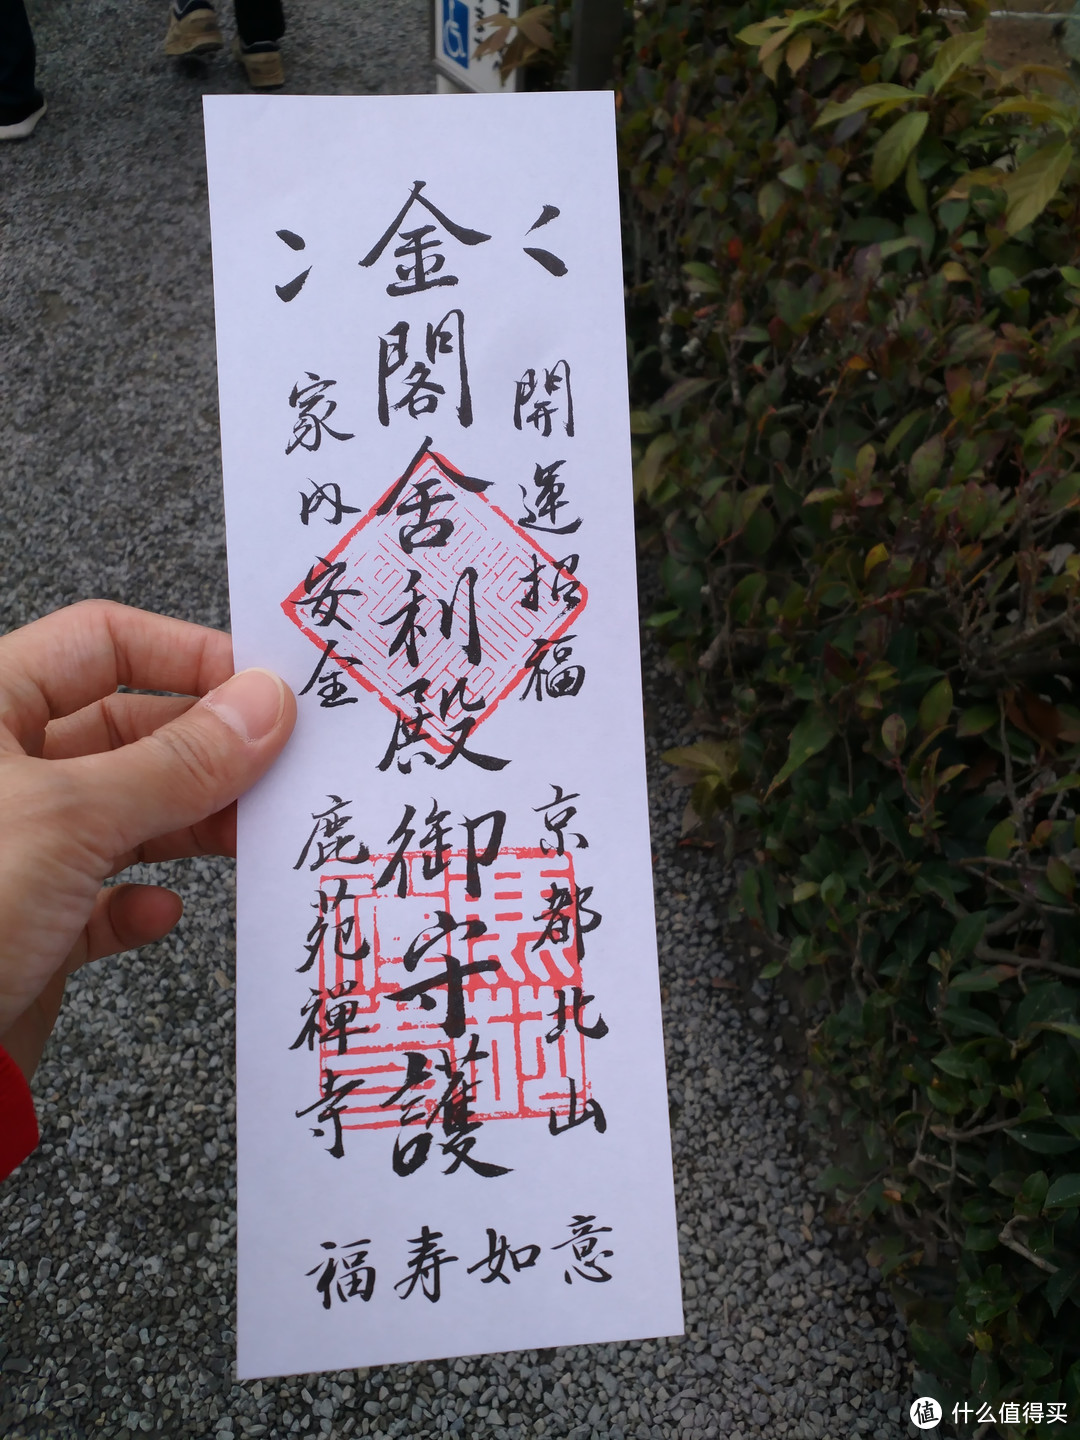 金閣舎利殿御守護
開運招福
家内安全
京都北山
鹿苑禅寺
福寿如意
值 什么值得买